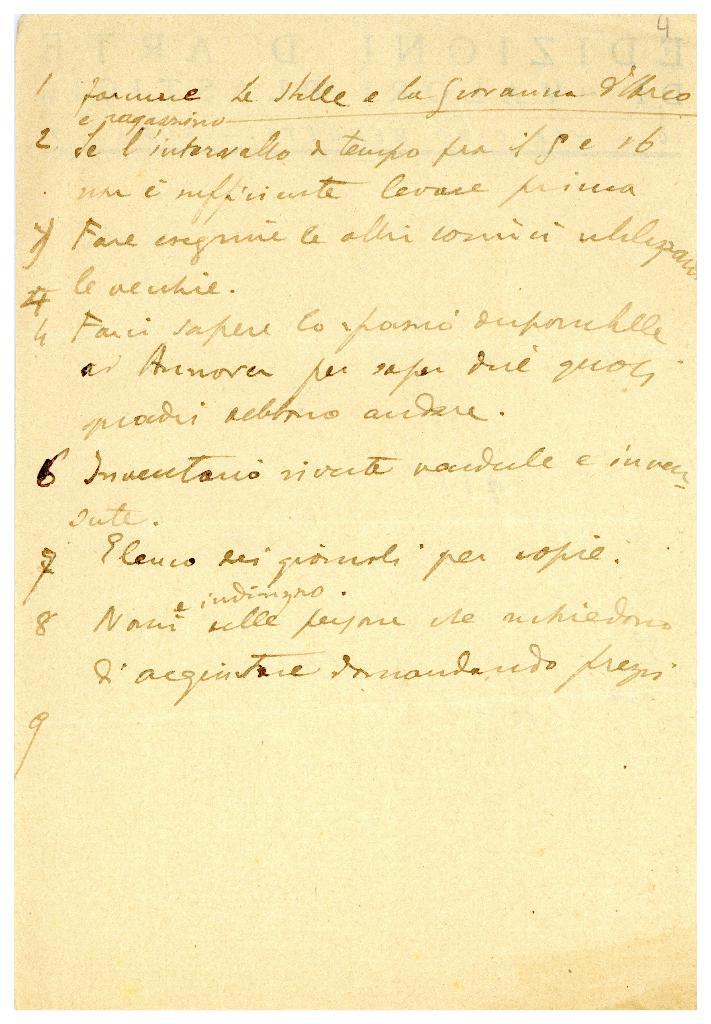 4
EDIZIONI D'ARTE
1 Fornire Le Stelle e la Giovanna d'Arco
e ragazzino
2 Se l'intervallo di tempo fra il 9 e 16
non è sufficiente levare prima
3) Fare eseguire le altre cornici utilizzan
le vecchie.
4 Farci sapere lo spazio disponibile
ad Annover per saper dire quali
quadri debbono andare.
6 Inventario riviste vendute e inven-
dute.
7 Elenco dei giornali per copie.
e indirizzo
8 Nomi delle persone che richiedono
di acquistare domandando prezzi
9